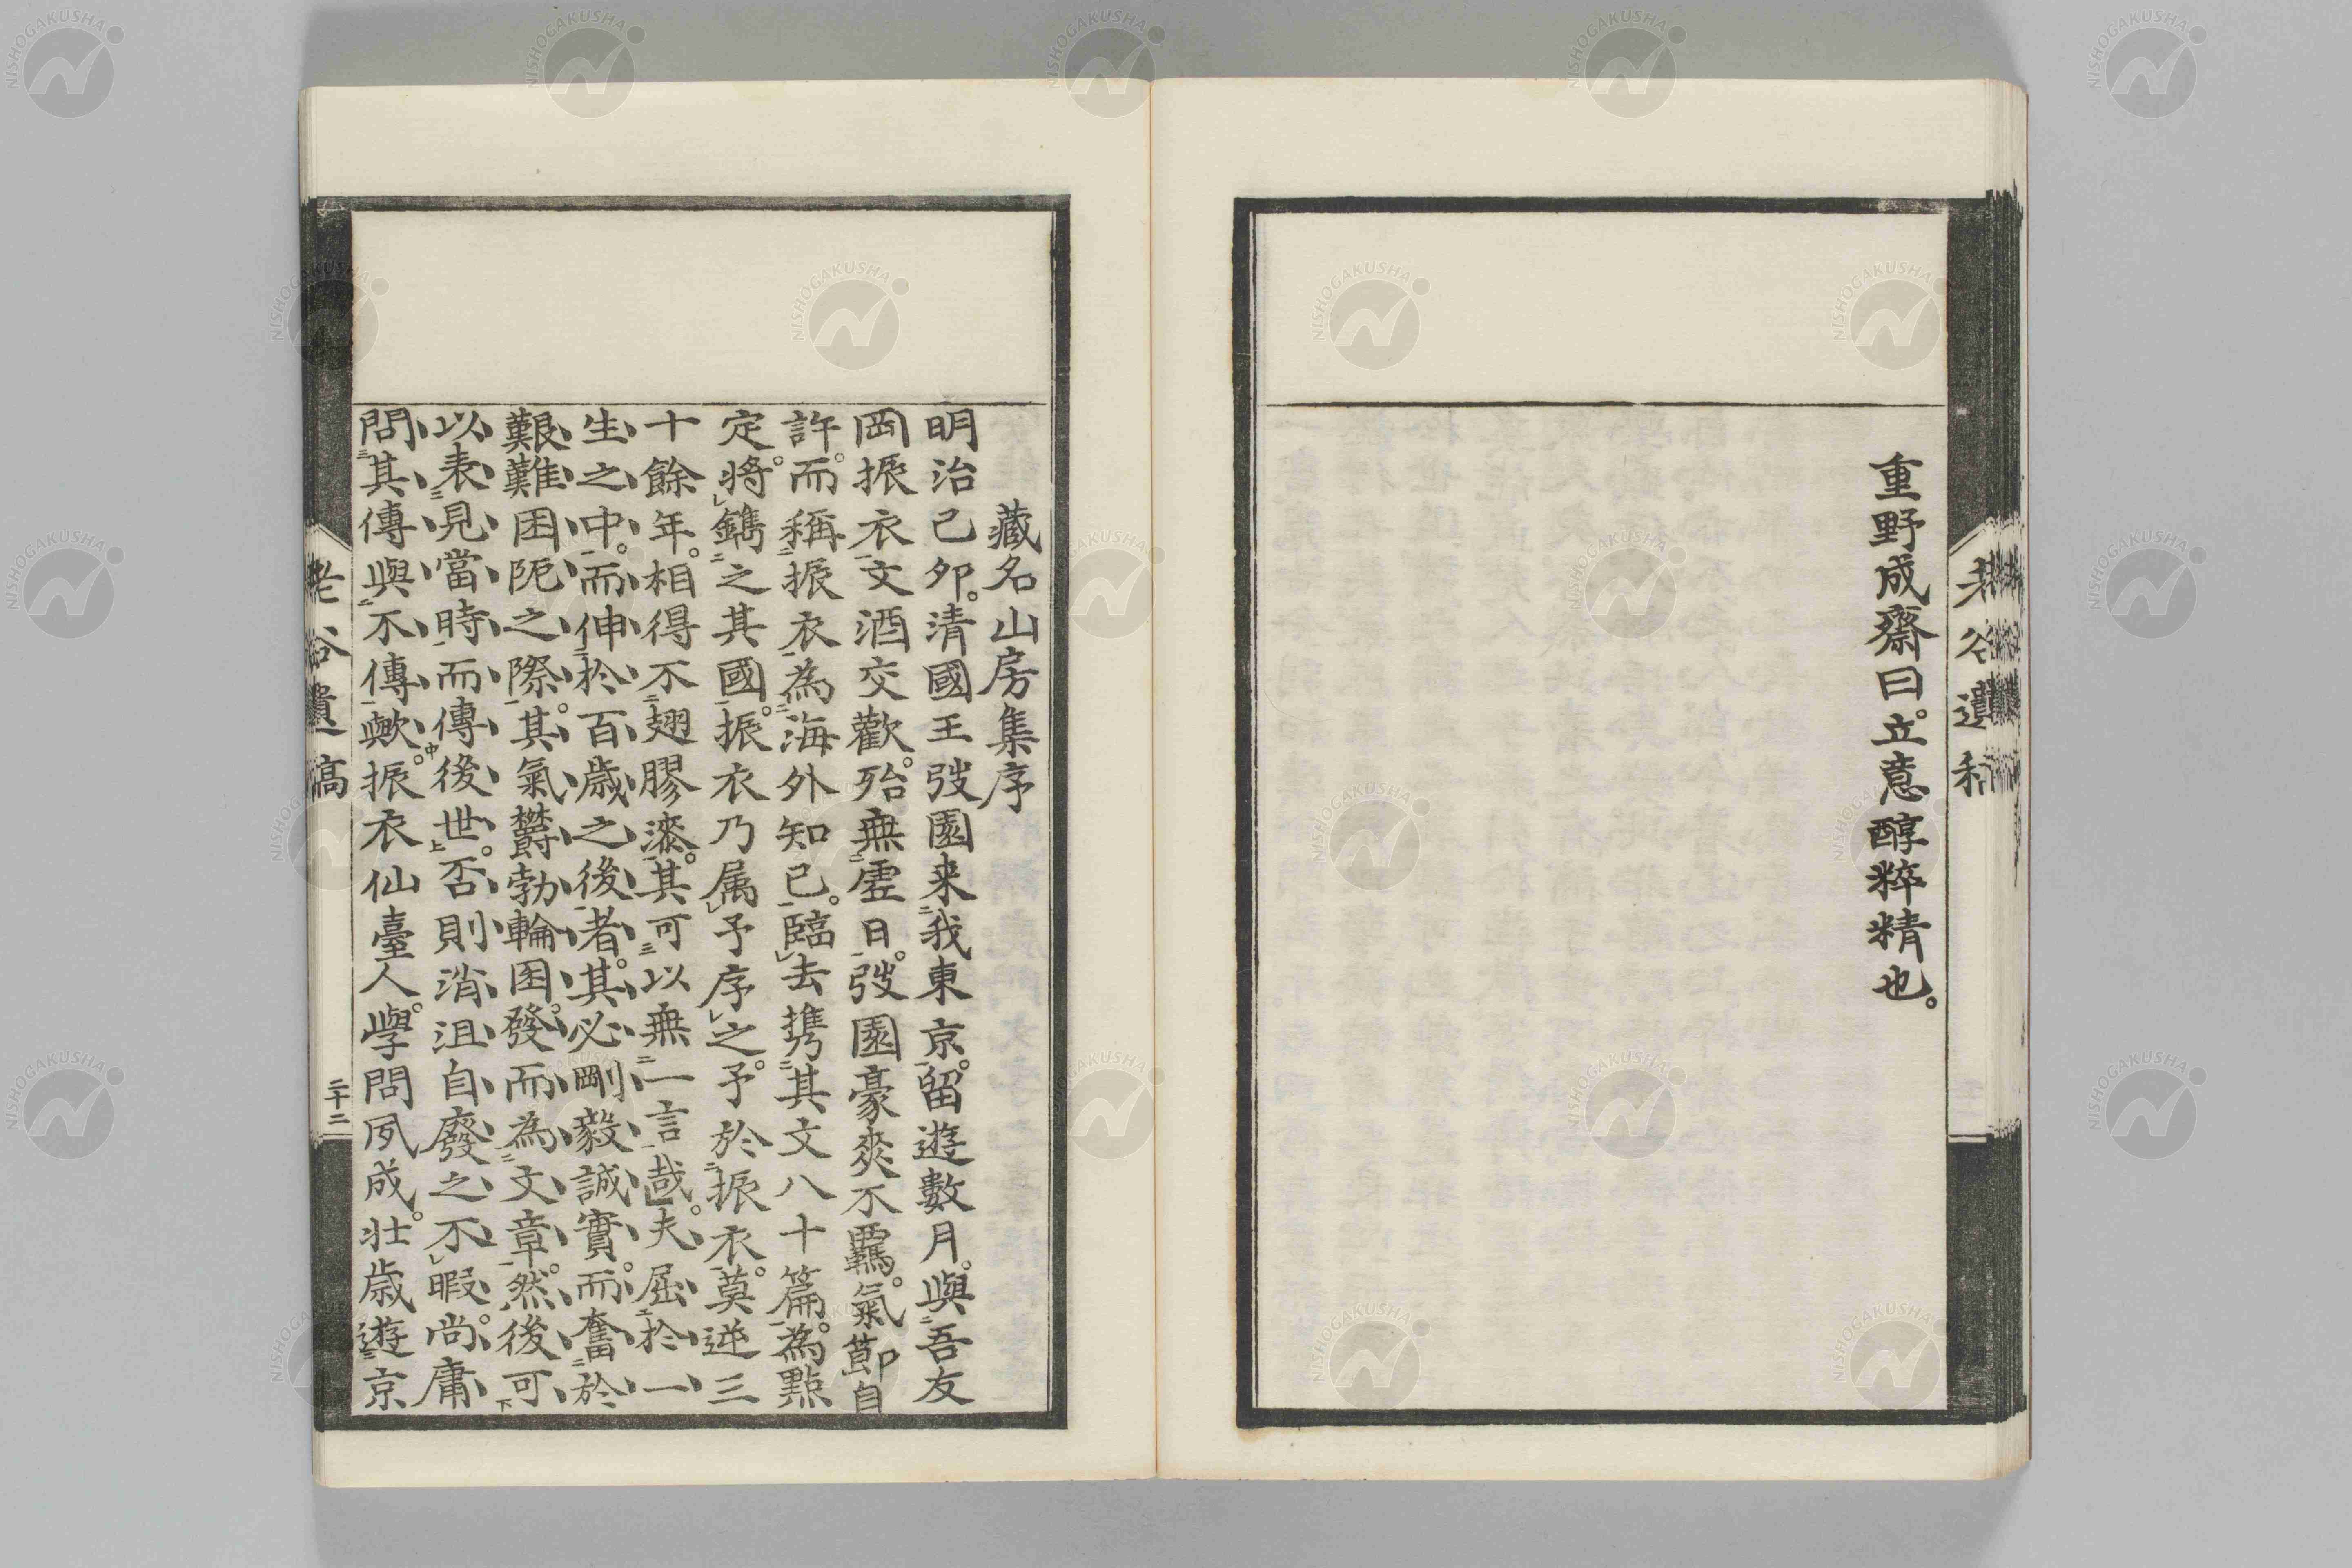 重野成齋曰。立意醇粹精也。
藏名山房集序
明治己夘。清國王弢園来我東京。留遊數月。與吾友
岡振衣文酒交歡。殆無虛日。弢園豪爽不羈。氣節自
許。而稱振衣為海外知己。臨去携其文八十篇。為點
定。將鐫之其國。振衣乃属予序之。予於振衣。莫逆三
十餘年。相得不翅膠漆。其可以無一言哉。夫屈於一
生之中。而伸於百歲之後者。其必剛毅誠實。而奮於
艱難困阨之際。其氣鬱勃輪囷。發而為文章。然後可
以表見當時。而傳後世。否則消沮自廢之不暇。尚庸
問其傳與不傳歟。振衣仙臺人。學問夙成。壮歲遊京
老谷遺稿
二十二
NISHOGAKUSHA